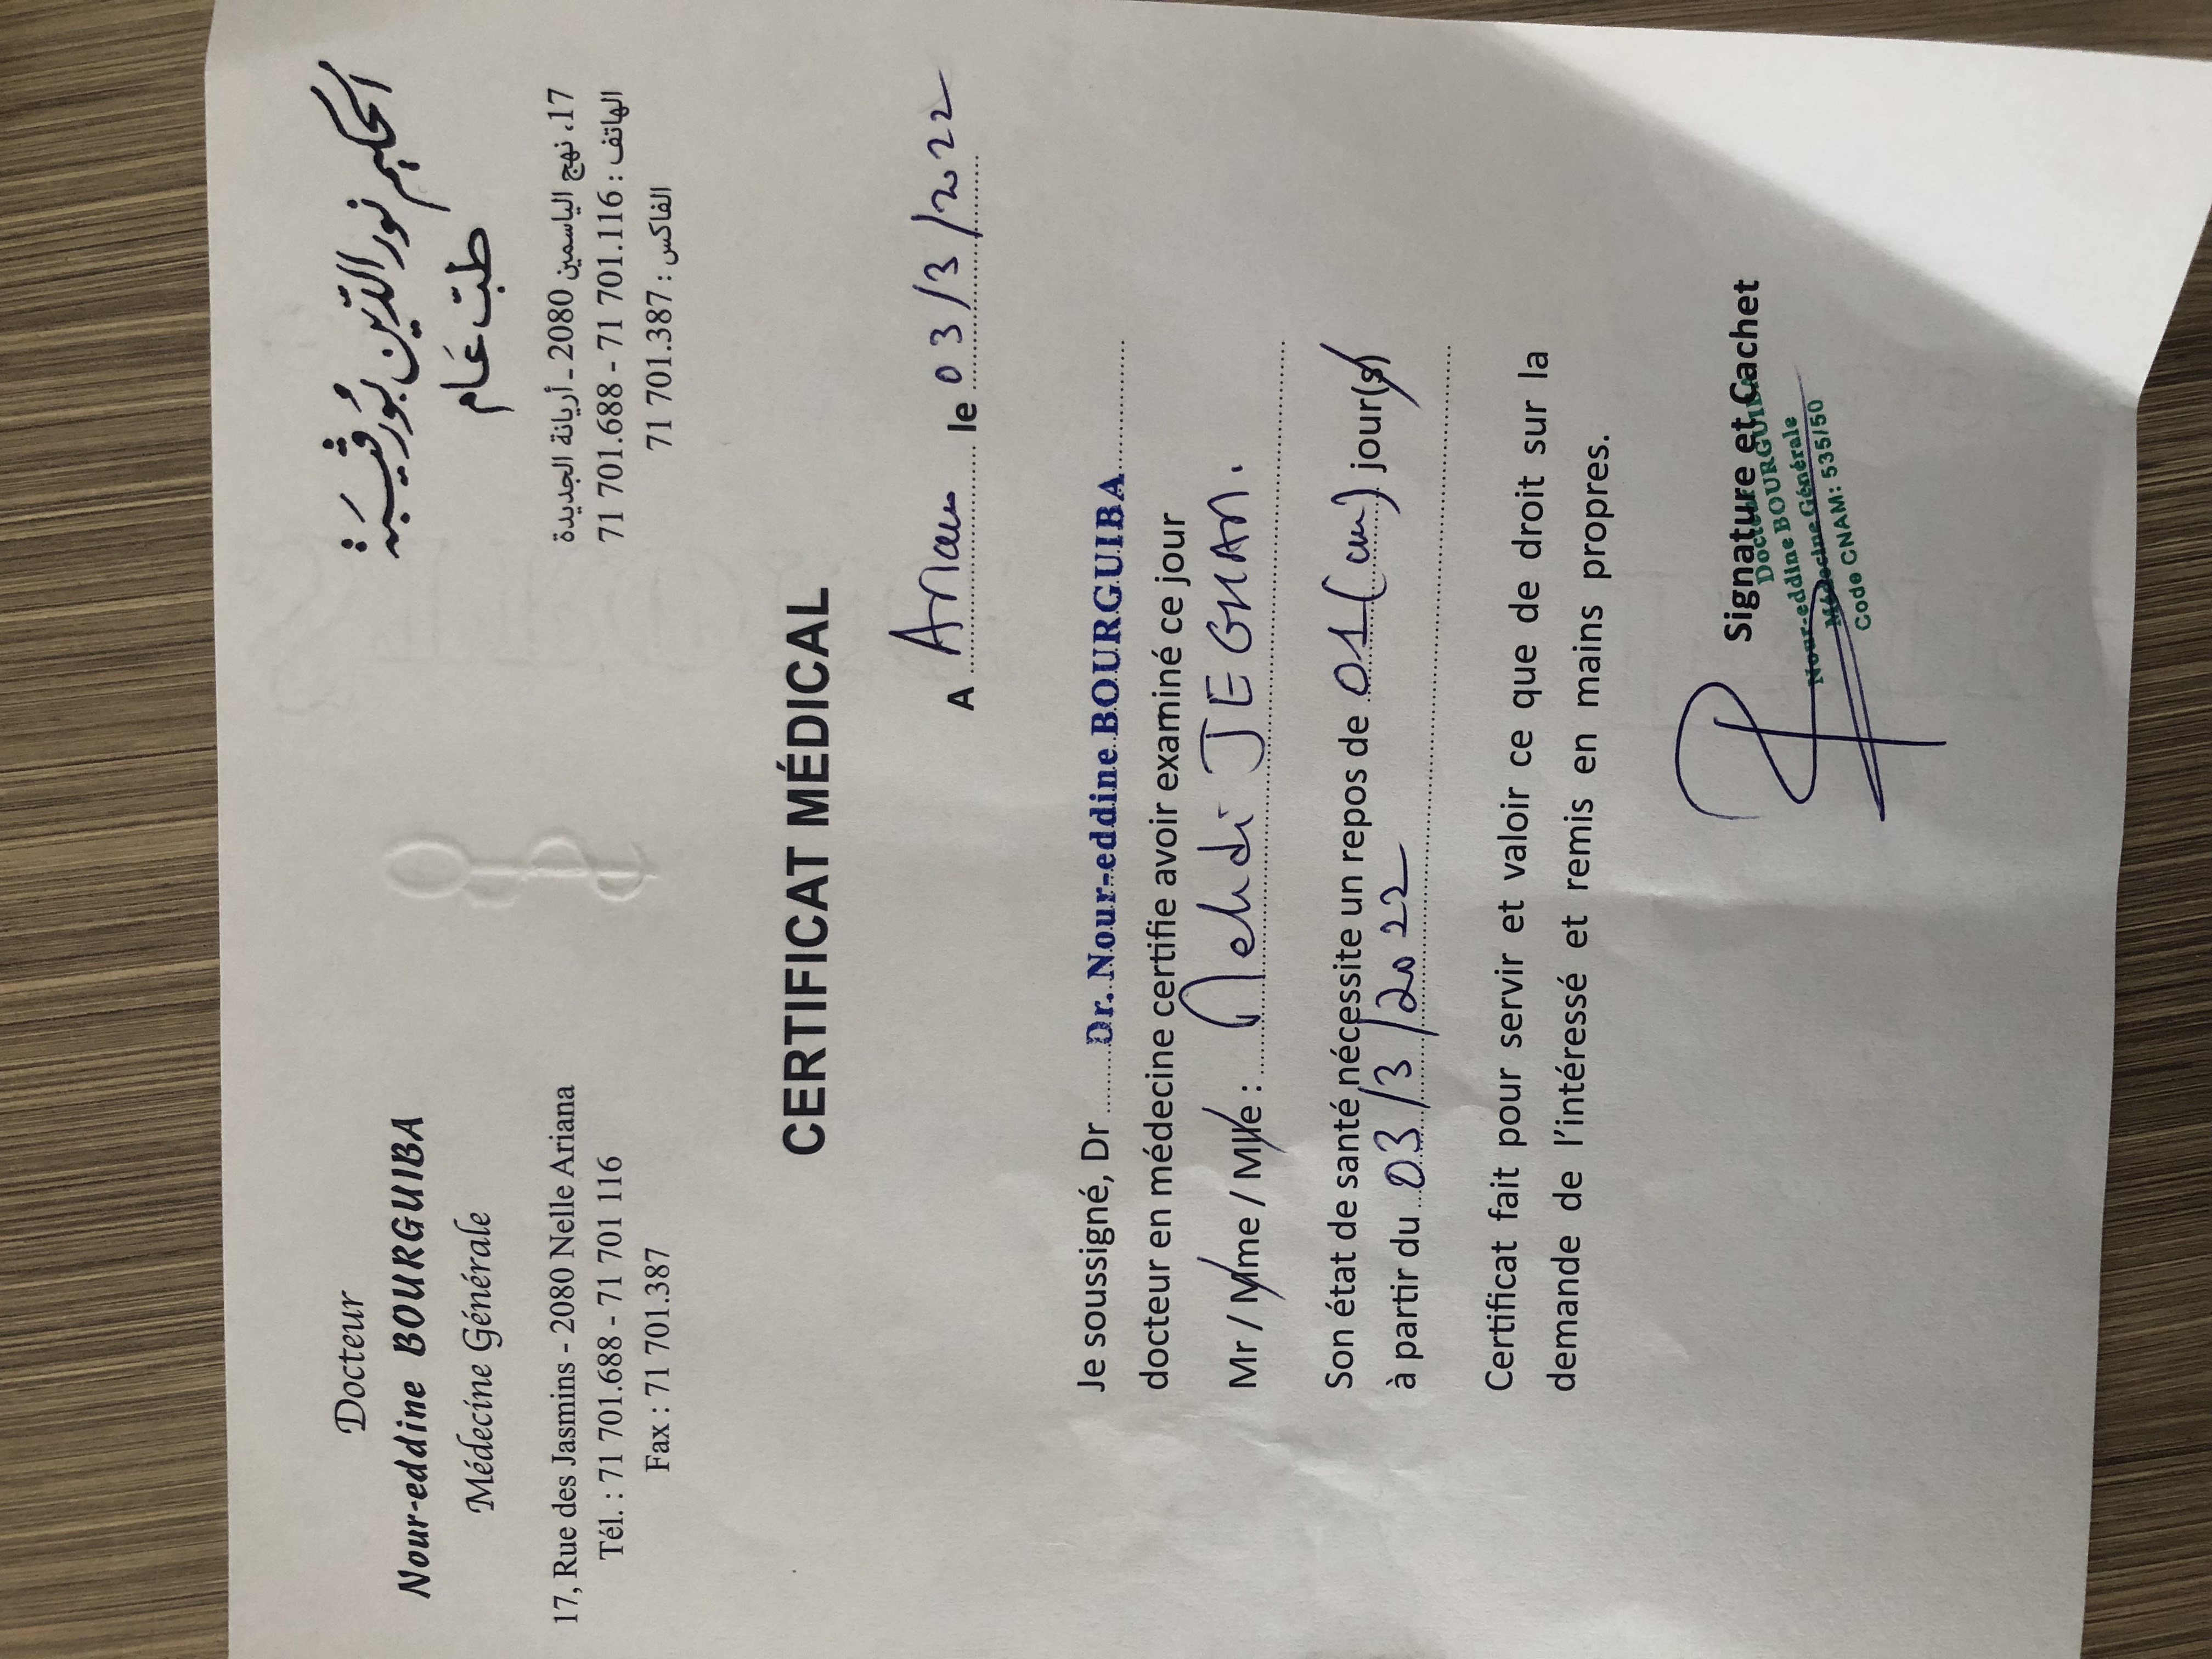 Docteur
Nour-eddine BOURGUIBA
Médecine Générale
17, Rue des Jasmins - 2080 Nelle Ariana
Tél. : 71 701.688 - 71 701 116
Fax : 71 701.387
الحكيم نور الدين بورقيبة
طب عام
17، نهج الياسمين 2080 - أريانة الجديدة
الهاتف : 71 701.116 - 71 701.688
الفاكس : 71 701.387
CERTIFICAT MÉDICAL
A le 03/3/2022
Je soussigné, Dr Dr. Nour-eddine BOURGUIBA
docteur en médecine certifie avoir examiné ce jour
Mr / Mme / Mlle : Mehdi JEGHAM.
Son état de santé nécessite un repos de 01 (un) jour(s)
à partir du 03/3/2022
Certificat fait pour servir et valoir ce que de droit sur la
demande de l'intéressé et remis en mains propres.
Signature et Cachet
Docteur
Nour-eddine BOURGUIBA
Médecine Générale
Code CNAM: 535/50